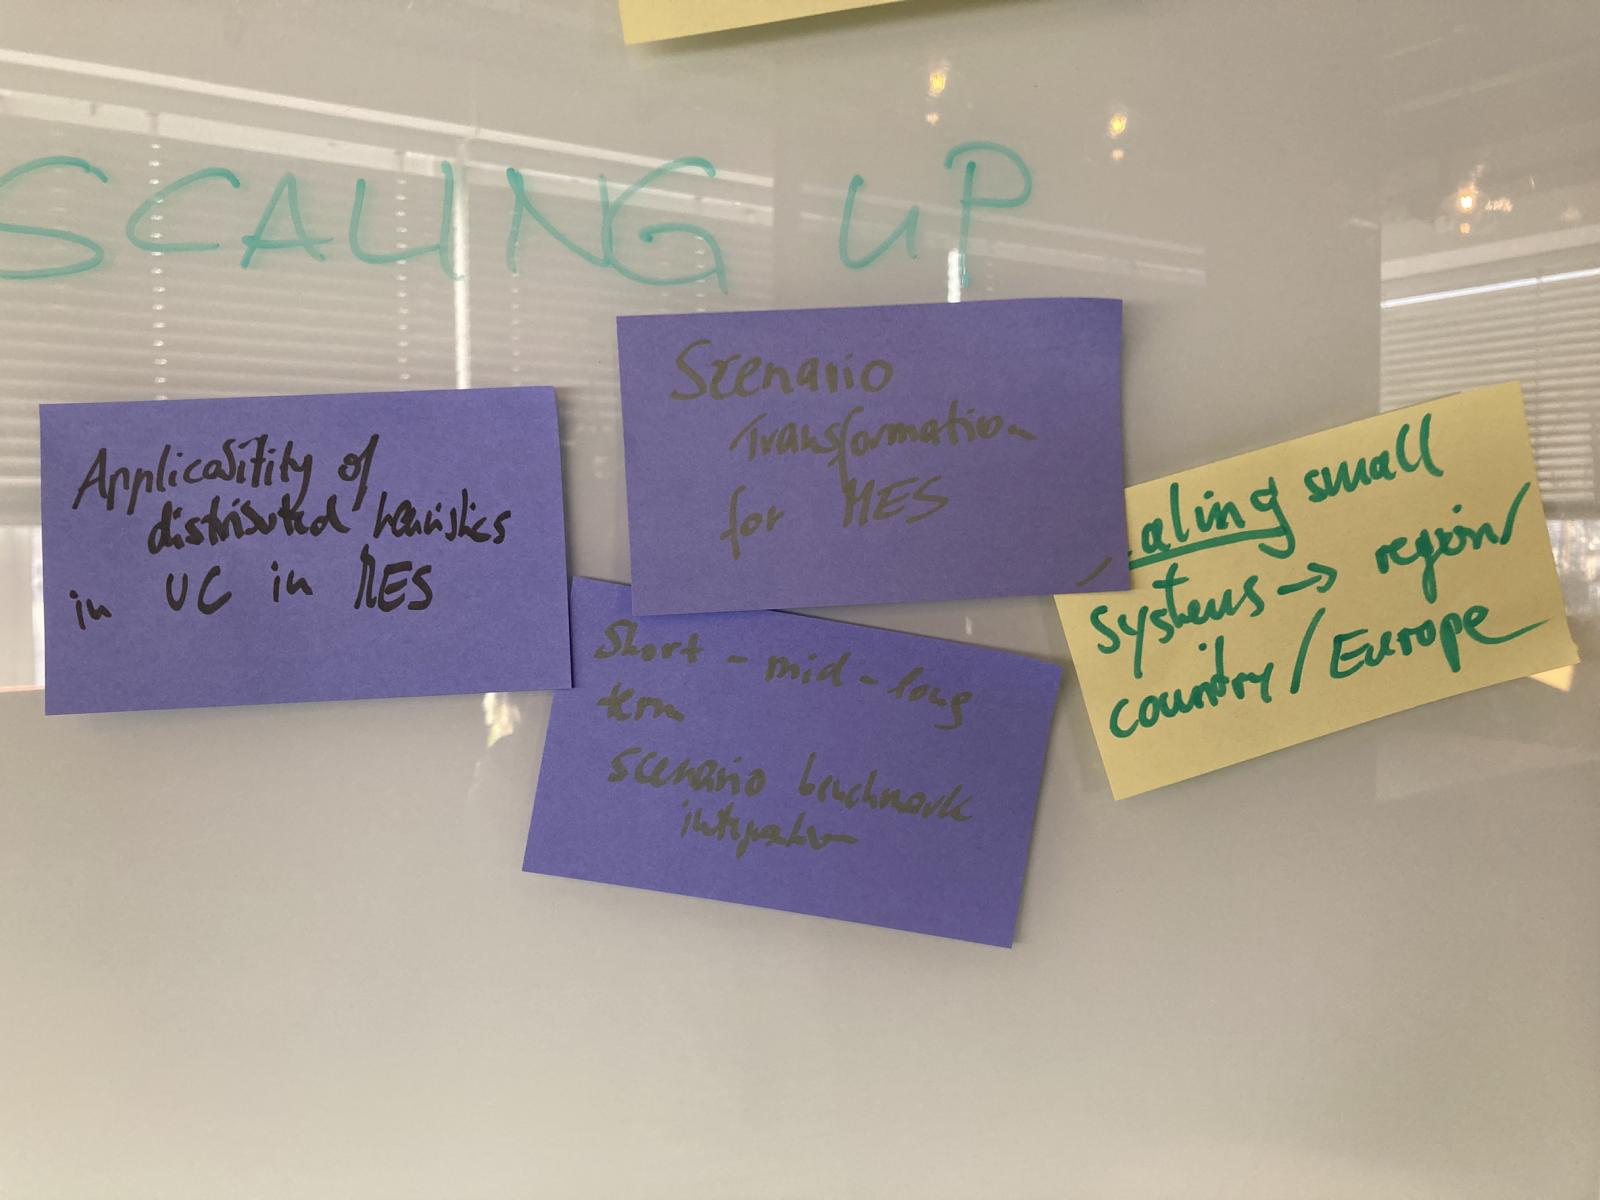 SCALING UP
Applicability of
distributed heuristics
in UC in MES
Scenario
Transformation
for MES
Short-mid-long
term
scenario benchmark
integration
aling small
systems → region/
country/Europe